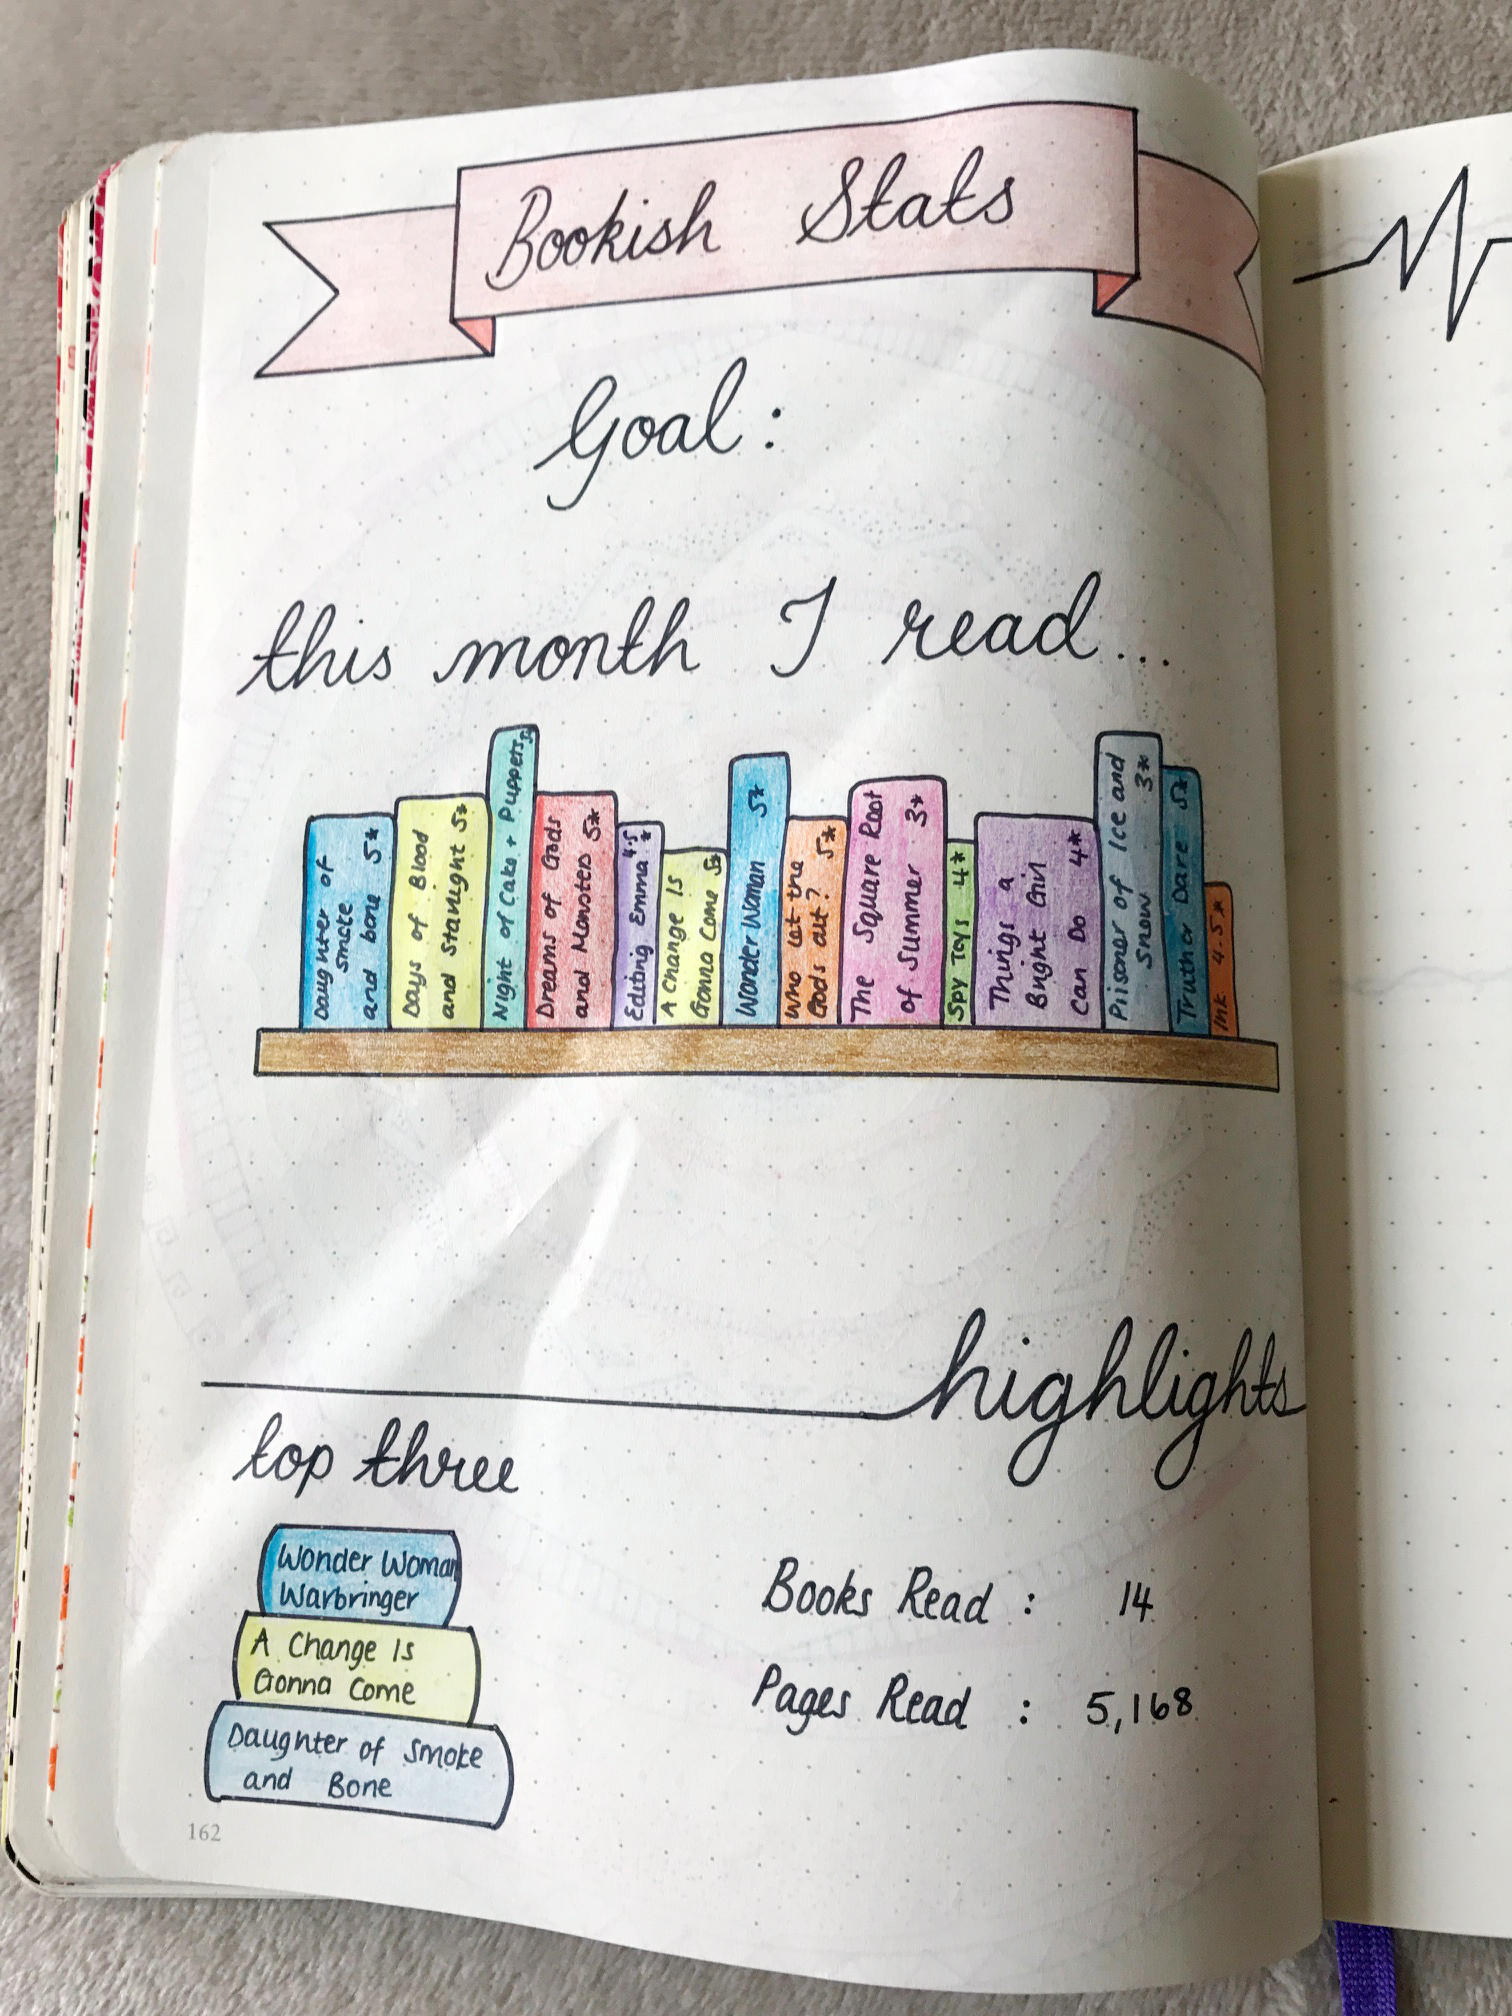 Bookish Stats
Goal:
this month I read...
Daughter of
smoke
and bone 5*
Days of Blood
and Starlight 5*
Night of Cake + Puppets 5*
Dreams of Gods
and Monsters 5*
Editing Emma 4.5*
A Change Is
Gonna Come 5*
Wonder Woman 5*
Who Let the
Gods out? 5*
The Square Root
of Summer 3*
Spy Toys 4*
Things a
Bright Girl
Can Do 4*
Prisoner of Ice and
Snow 3*
Truth or Dare 5*
Ink 4.5*
highlights
top three
Wonder Woman
Warbringer
A Change Is
Gonna Come
Daughter of Smoke
and Bone
Books Read : 14
Pages Read : 5,168
162